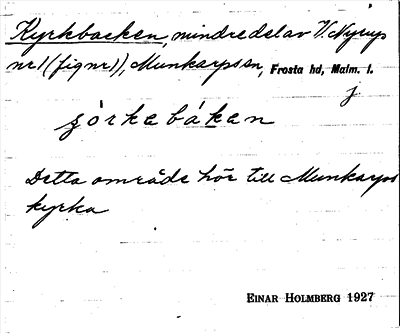 Kyrkbacken, mindre del av V. Nyrup
nr 1 (fig nr 1), Munkarps sn, Frosta hd, Malm. l.
j
sȯrkebȧken
Detta område hör till Munkarps
kyrka
EINAR HOLMBERG 1927